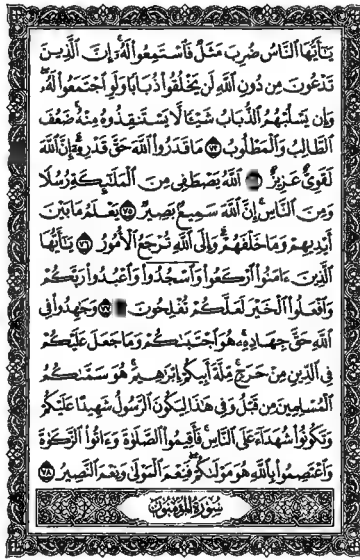 يَٰٓأَيُّهَا ٱلنَّاسُ ضُرِبَ مَثَلٌ فَٱسْتَمِعُوا۟ لَهُۥٓ ۚ إِنَّ ٱلَّذِينَ
تَدْعُونَ مِن دُونِ ٱللَّهِ لَن يَخْلُقُوا۟ ذُبَابًا وَلَوِ ٱجْتَمَعُوا۟ لَهُۥ ۖ
وَإِن يَسْلُبْهُمُ ٱلذُّبَابُ شَيْـًٔا لَّا يَسْتَنقِذُوهُ مِنْهُ ۚ ضَعُفَ
ٱلطَّالِبُ وَٱلْمَطْلُوبُ ٧٣ مَا قَدَرُوا۟ ٱللَّهَ حَقَّ قَدْرِهِۦٓ ۗ إِنَّ ٱللَّهَ
لَقَوِىٌّ عَزِيزٌ ٱللَّهُ يَصْطَفِى مِنَ ٱلْمَلَٰٓئِكَةِ رُسُلًا
وَمِنَ ٱلنَّاسِ ۚ إِنَّ ٱللَّهَ سَمِيعٌۢ بَصِيرٌ ٧٥ يَعْلَمُ مَا بَيْنَ
أَيْدِيهِمْ وَمَا خَلْفَهُمْ ۗ وَإِلَى ٱللَّهِ تُرْجَعُ ٱلْأُمُورُ ٧٦ يَٰٓأَيُّهَا
ٱلَّذِينَ ءَامَنُوا۟ ٱرْكَعُوا۟ وَٱسْجُدُوا۟ وَٱعْبُدُوا۟ رَبَّكُمْ
وَٱفْعَلُوا۟ ٱلْخَيْرَ لَعَلَّكُمْ تُفْلِحُونَ ٧٧ وَجَٰهِدُوا۟ فِى
ٱللَّهِ حَقَّ جِهَادِهِۦ ۚ هُوَ ٱجْتَبَىٰكُمْ وَمَا جَعَلَ عَلَيْكُمْ
فِى ٱلدِّينِ مِنْ حَرَجٍ ۚ مِّلَّةَ أَبِيكُمْ إِبْرَٰهِيمَ ۚ هُوَ سَمَّىٰكُمُ
ٱلْمُسْلِمِينَ مِن قَبْلُ وَفِى هَٰذَا لِيَكُونَ ٱلرَّسُولُ شَهِيدًا عَلَيْكُمْ
وَتَكُونُوا۟ شُهَدَآءَ عَلَى ٱلنَّاسِ ۚ فَأَقِيمُوا۟ ٱلصَّلَوٰةَ وَءَاتُوا۟ ٱلزَّكَوٰةَ
وَٱعْتَصِمُوا۟ بِٱللَّهِ هُوَ مَوْلَىٰكُمْ ۖ فَنِعْمَ ٱلْمَوْلَىٰ وَنِعْمَ ٱلنَّصِيرُ ٧٨
سُورَةُ المُؤْمِنُونَ